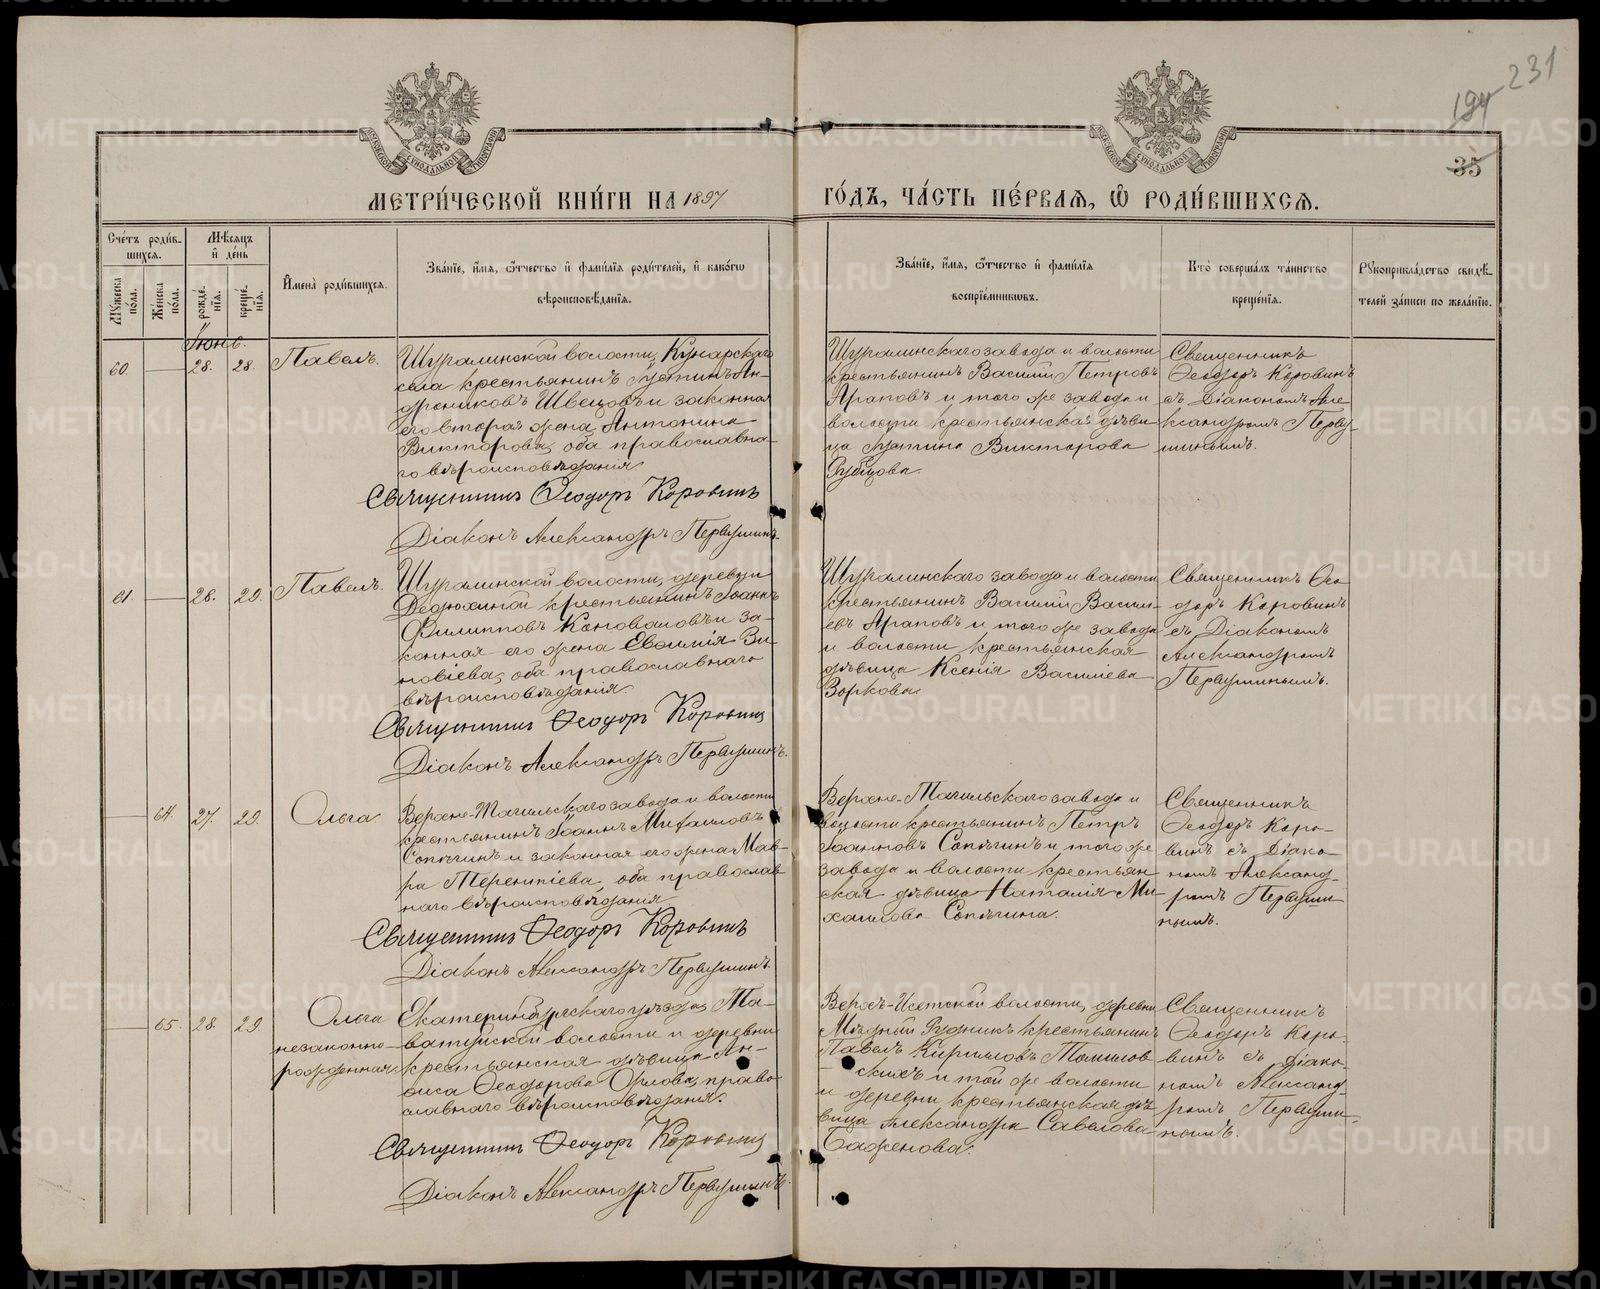 231
194
35
МОСКОВСКОЙ СУНОДАЛЬНОЙ ТИПОГРАФІИ
МОСКОВСКОЙ СУНОДАЛЬНОЙ ТИПОГРАФІИ
МЕТРИ́ЧЕСКОЙ КНИ́ГИ НА 1897
ГО́ДЪ, ЧА́СТЬ ПЕ́РВАѦ, Ѽ РОДИ́ВШИХСѦ.
Сче́тъ роди́в-
шихся.
Мѣ́сяцъ
и҆ де́нь
И҆мена̀ роди́вшихся.
Зва́нїе, и҆́мя, ѻ҆́тчество и҆ фами́лїя роди́телей, и҆ како́гѡ
вѣроисповѣ́данїя.
Мꙋ́жеска
по́ла.
Же́нска
по́ла.
рожде́-
нїя.
креще́-
нїя.
Зва́нїе, и҆́мя, ѻ҆́тчество и҆ фами́лїя
воспрїе́мникѡвъ.
Кто̀ соверша́лъ та́инство
креще́нїя.
Рꙋкоприкла́дство свидѣ́-
телей за́писи по жела́нїю.
Іюнь.
60 28. 28. Павелъ.
Шуралинской волости, Кунарскаго
села крестьянинъ Іустинъ Ан-
дрониковъ Швецовъ и законная
его вторая жена Антонина
Викторова, оба православна-
го вѣроисповѣданія.
Священникъ Ѳеодоръ Коровинъ
Діаконъ Александръ Первушинъ.
Шуралинскаго завода и волости
крестьянинъ Василій Петровъ
Араповъ и того же завода и
волости крестьянская дѣви-
ца Іустина Викторова
Рубцова.
Священникъ
Ѳеодоръ Коровинъ
съ Діакономъ Але
ксандромъ Перву-
шинымъ.
61. 28. 29. Павелъ.
Шуралинской волости, деревни
Дедюхиной крестьянинъ Іоаннъ
Филипповъ Коноваловъ и за-
конная его жена Евѳимія Зи-
новіева, оба православнаго
вѣроисповѣданія.
Священникъ Ѳеодоръ Коровинъ
Діаконъ Александръ Первушинъ.
Шуралинскаго завода и волости
крестьянинъ Василій Васил-
евъ Араповъ и того же завода
и волости крестьянская
дѣвица Ксенія Василіева
Зоркова.
Священникъ Ѳео
доръ Коровинъ
съ Діакономъ
Александромъ
Первушинымъ.
64. 27. 29. Ольга.
Верхне-Тагильскаго завода и волости
крестьянинъ Іоаннъ Михаиловъ
Сопѣгинъ и законная его жена Мав-
ра Терентіева, оба православ
наго вѣроисповѣданія
Священникъ Ѳеодоръ Коровинъ
Діаконъ Александръ Первушинъ.
Верхне-Тагильскаго завода и
волости крестьянинъ Петръ
Іоанновъ Сопѣгинъ и того же
завода и волости крестьян
ская дѣвица Наталія Ми
хаилова Сопѣгина.
Священникъ
Ѳеодоръ Коро-
винъ съ Діако-
номъ Александ-
ромъ Первуши
нымъ.
65. 28. 29. Ольга
незаконно-
рожденная.
Екатеринбургскаго уѣзда, Та-
ватуйской волости и деревни
крестьянская дѣвица Ан-
фиса Ѳеодорова Орлова, право-
славнаго вѣроисповѣданія.
Священникъ Ѳеодоръ Коровинъ
Діаконъ Александръ Первушинъ.
Верхъ-Исетской волости, деревни
Мѣдный Рудникъ крестьянинъ
Павелъ Кирилловъ Томилов
-скихъ и той же волости
и деревни крестьянская дѣ
вица Александра Савелова
Сафонова.
Священникъ
Ѳеодоръ Коро-
винъ съ Діако-
номъ Александ-
ромъ Первуши-
нымъ.